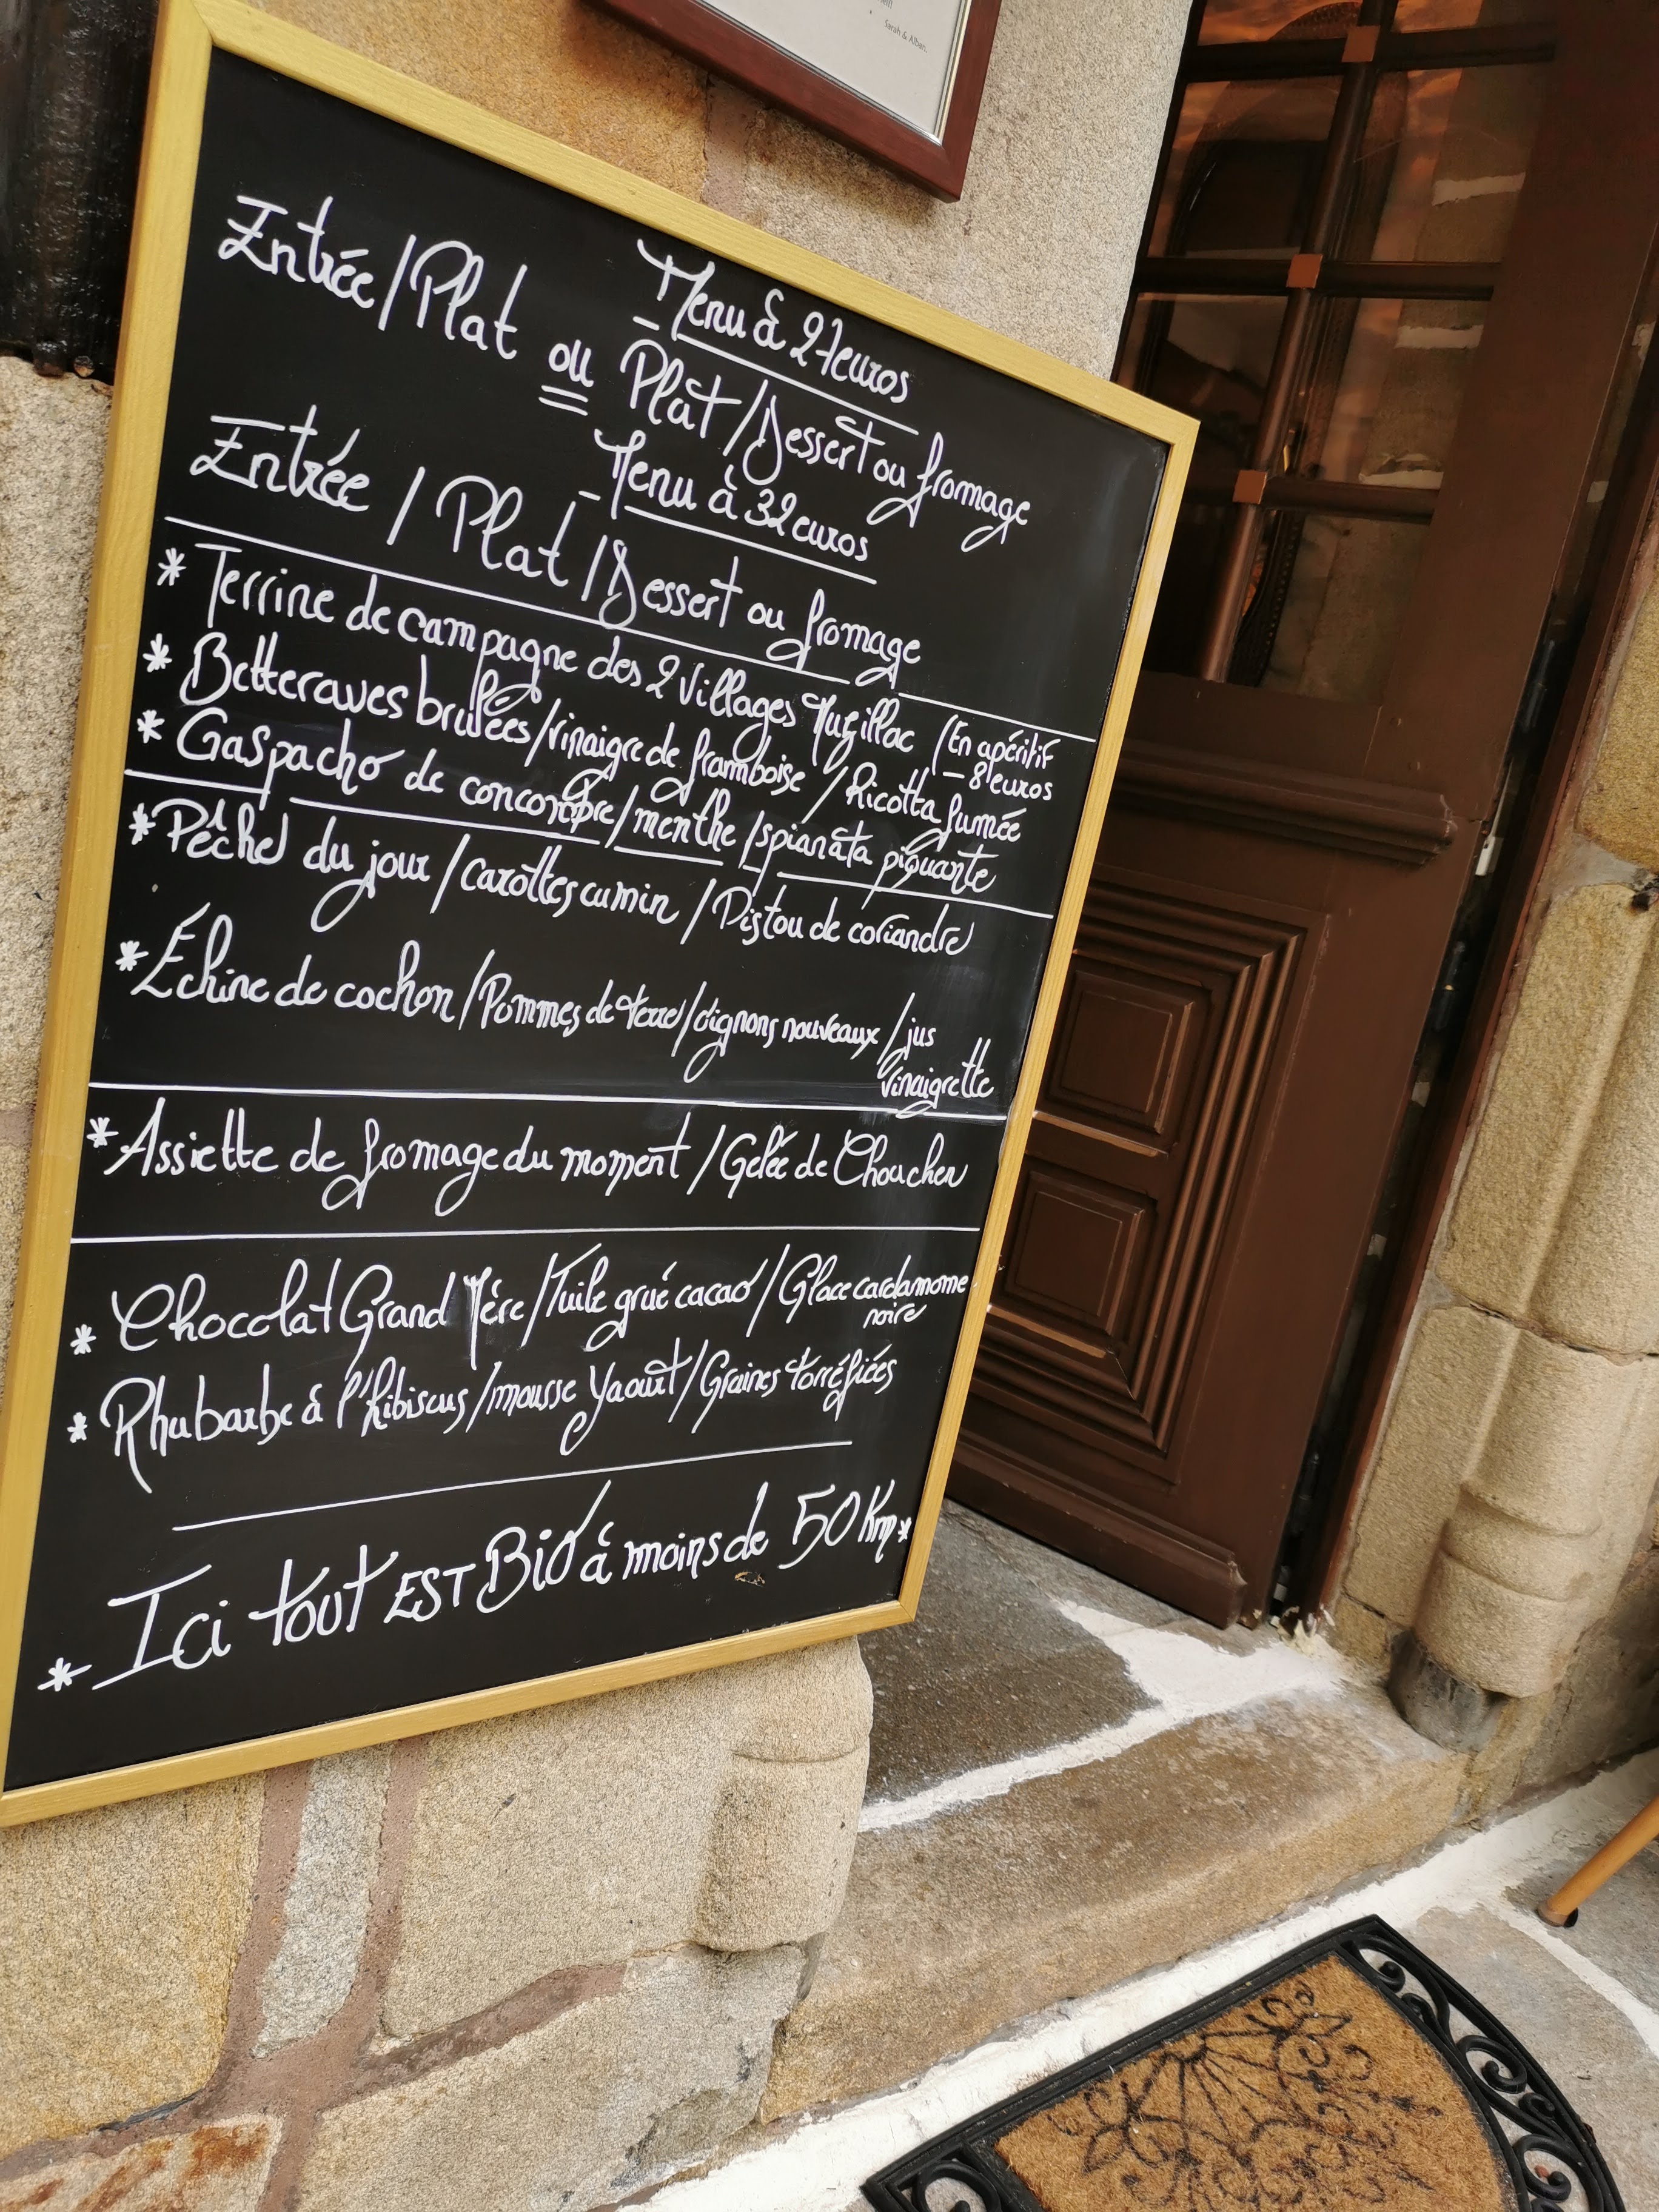 Sarah & Alban.
Menu à 27euros
Entrée/Plat ou Plat/Dessert ou fromage
Menu à 32 euros
Entrée / Plat / Dessert ou fromage
* Terrine de campagne des 2 Villages Muzillac / En apéritif
8 euros
* Betteraves brulées / vinaigre de framboise / Ricotta fumée
* Gaspacho de concombre / menthe / spianata piquante
* Pêche du jour / carottes cumin / Pistou de coriandre
* Échine de cochon / Pommes de terre / oignons nouveaux / jus
vinaigrette
* Assiette de fromage du moment / Gelée de Chouchen
* Chocolat Grand Mère / Tuile grué cacao / Glace cardamome
noire
* Rhubarbe à l'hibiscus / mousse Yaourt / Graines torréfiées
* Ici tout EST Bio à moins de 50 Km *